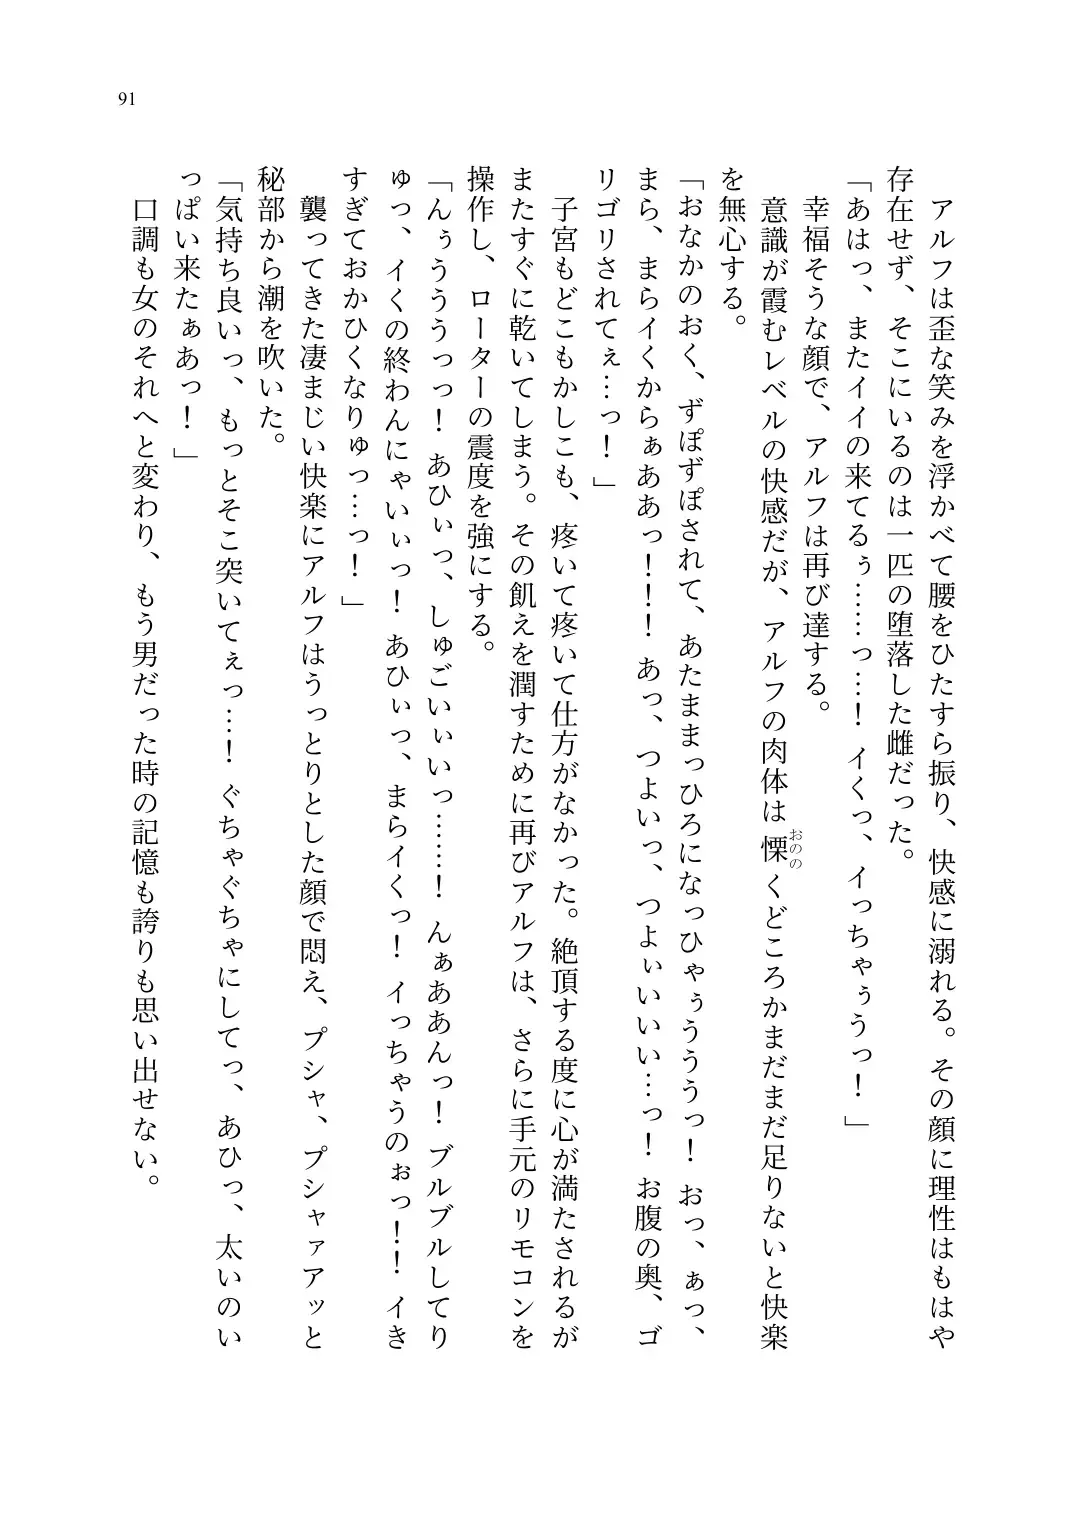 91
　アルフは歪な笑みを浮かべて腰をひたすら振り、快感に溺れる。その顔に理性はもはや
存在せず、そこにいるのは一匹の堕落した雌だった。
「あはっ、またイイの来てるぅ……っ…！ イくっ、イっちゃぅうっ！」
　幸福そうな顔で、アルフは再び達する。
　意識が霞むレベルの快感だが、アルフの肉体は慄くどころかまだまだ足りないと快楽
おのの
を無心する。
「おなかのおく、ずぽずぽされて、あたままっひろになっひゃぅううっ！ おっ、ぁっ、
まら、まらイくからぁああっ！！！ あっ、つよいっ、つよぃいいい…っ！ お腹の奥、ゴ
リゴリされてぇ…っ！」
　子宮もどこもかしこも、疼いて疼いて仕方がなかった。絶頂する度に心が満たされるが
またすぐに乾いてしまう。その飢えを潤すために再びアルフは、さらに手元のリモコンを
操作し、ローターの震度を強にする。
「んぅうううっっ！ あひぃっ、しゅごいぃいっ……！ んぁああんっ！ ブルブルしてり
ゅっ、イくの終わんにゃいぃっ！ あひぃっ、まらイくっ！ イっちゃうのぉっ！！ イき
すぎておかひくなりゅっ…っ！」
　襲ってきた凄まじい快楽にアルフはうっとりとした顔で悶え、プシャ、プシャァアッと
秘部から潮を吹いた。
「気持ち良いっ、もっとそこ突いてぇっ…！ ぐちゃぐちゃにしてっ、あひっ、太いのい
っぱい来たぁあっ！」
　口調も女のそれへと変わり、もう男だった時の記憶も誇りも思い出せない。